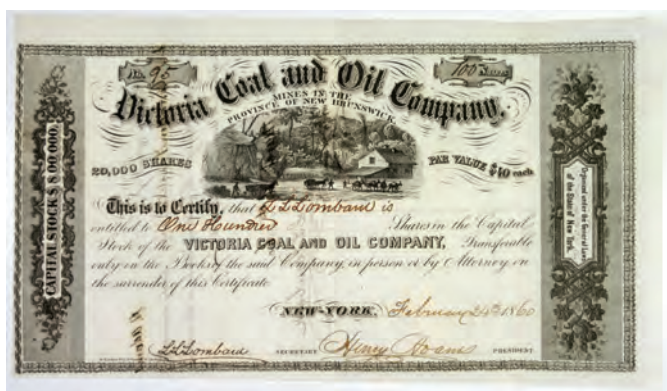 No. 95
100 Shares
Victoria Coal and Oil Company.
MINES IN THE
PROVINCE OF NEW BRUNSWICK.
20,000 SHARES
PAR VALUE $40 each
CAPITAL STOCK $800,000.
Organized under the General Law
of the State of New York.
This is to Certify, that L L Lombard is
entitled to One Hundred Shares in the Capital
Stock of the VICTORIA COAL AND OIL COMPANY, Transferable
only on the Books of the said Company, in person or by Attorney on
the surrender of this Certificate
NEW-YORK, February 24th 1860
L L Lombard SECRETARY Henry PRESIDENT